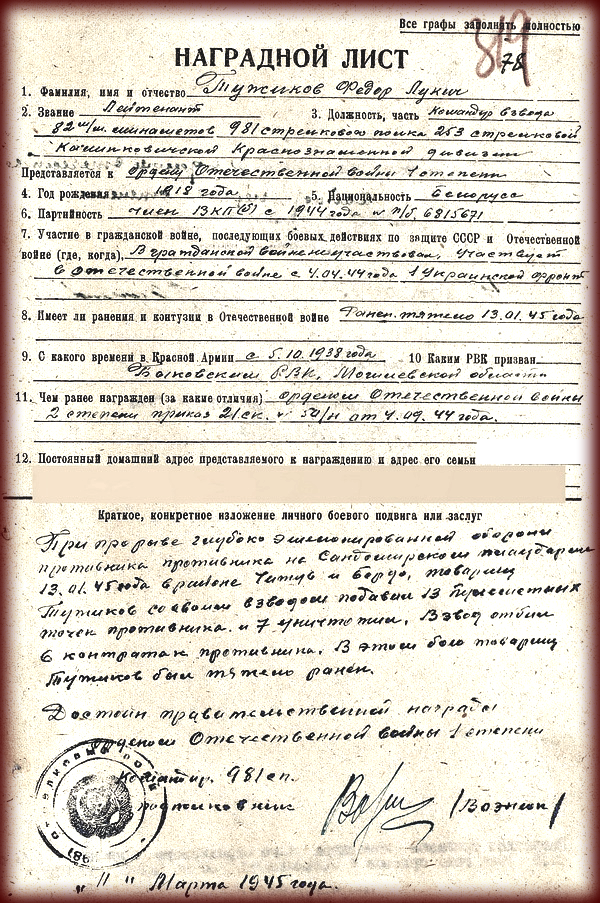 Все графы заполнять полностью
819
78
НАГРАДНОЙ ЛИСТ
1. Фамилия, имя и отчество Тужиков Федор Лукич
2. Звание Лейтенант 3. Должность, часть Командир взвода
82 м/м. минометов 981 стрелкового полка 253 стрелковой
Краснознаменной дивизии
Представляется к ордену Отечественной войны 1 степени
4. Год рождения 1918 года 5. Национальность Белорусс
6. Партийность член ВКП(б) с 1944 года № п/б. 6815671
7. Участие в гражданской войне, последующих боевых действиях по защите СССР и Отечественной
войне (где, когда), В гражданской войне не участвовал, Участвует
в отечественной войне с 4.04.44 года 1 Украинской Фронт
8. Имеет ли ранения и контузии в Отечественной войне Ранен тяжело 13.01.45 года
9. С какого времени в Красной Армии с 5.10.1938 года 10 Каким РВК призван.
РВК, Могилевской области
11. Чем ранее награжден (за какие отличия) орденом Отечественной войны
2 степени приказ 21 ск. № 50/н от 4.09.44 года.
12. Постоянный домашний адрес представляемого к награждению и адрес его семьи
Краткое, конкретное изложение личного боевого подвига или заслуг
При прорыве глубоко эшелонированной обороны
противника противника на Сандомирском плацдарме
13.01.45 года в районе и товарищ
Тужиков со своим взводом подавил 13
точек противника и 7 уничтожил. Взвод отбил
6 контратак противника. В этом бою товарищ
Тужиков был тяжело ранен.
Достоин правительственной награды
орденом Отечественной войны 1 степени
Командир 981 сп.
подполковник
"11" Марта 1945 года.